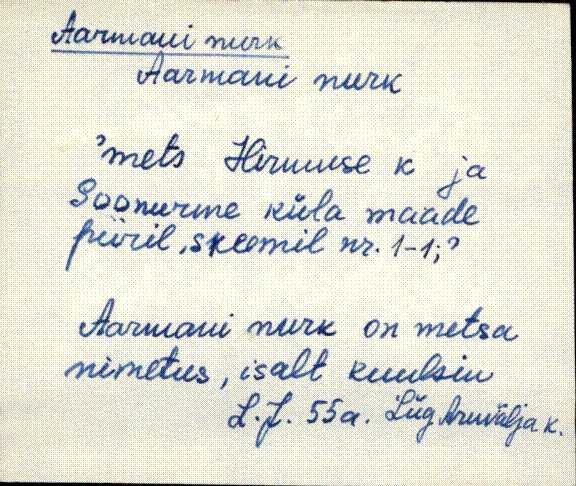 Aarmani nurk
Aarmani nurk
'mets Hirmuse k ja
Soonurme küla maade
piiril, skeemil nr. 1-1;'
Aarmani nurk on metsa
nimetus, isalt kuulsin
L.J. 55a. Lüg. Aruvälja k.